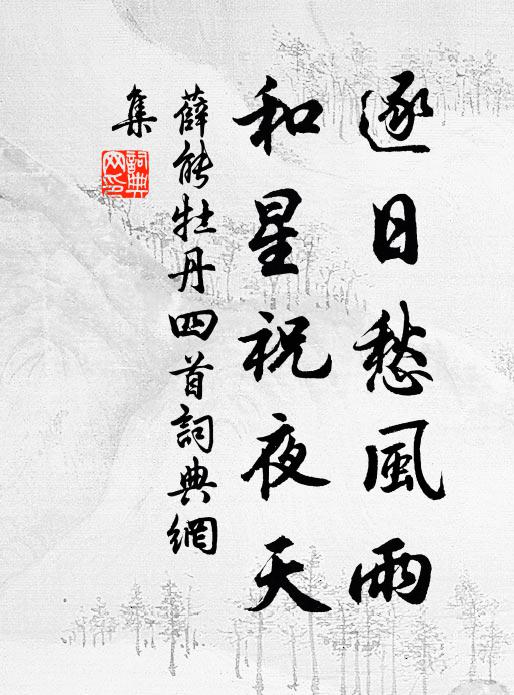 逐日愁風雨
和星祝夜天
薛能牡丹四首詞典網
集
詞典
网印